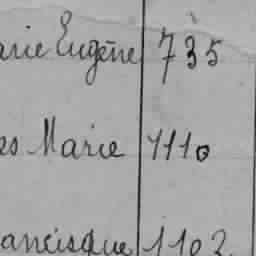 arie Eugène 735
es Marie 1110
ancisque 1102